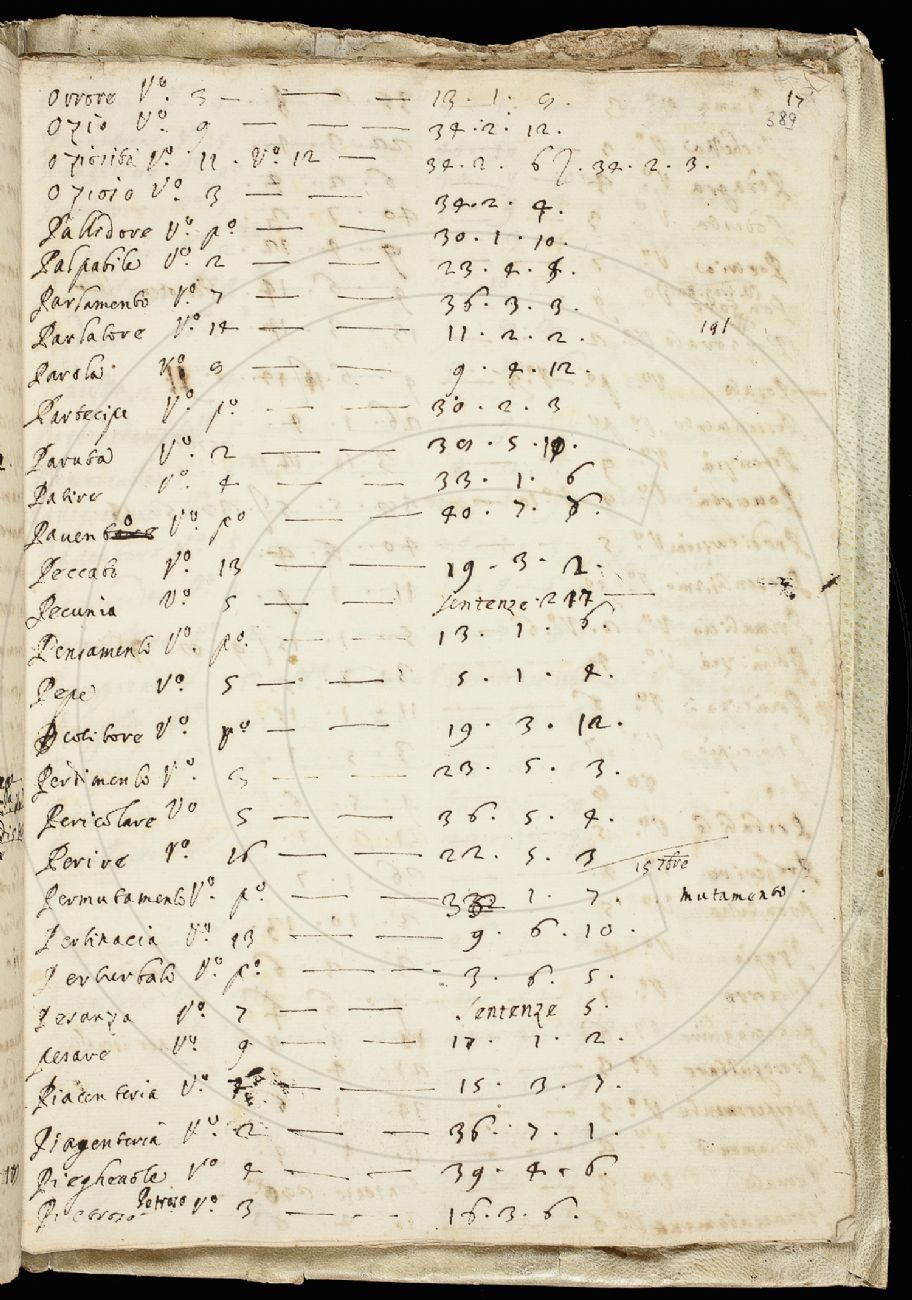 17
389
Orrore Vº. 3 — — — 13. 1. 9.
Ozio Vº. 9 — — — 34. 2. 12.
Oziosità Vº. 11. Vº. 12 — 34. 2. 6 }. 34. 2. 3.
Ozioso Vº. 3 — — 34. 2. 4.
Pallidore Vº. pº. — — 30. 1. 10.
Palpabile Vº. 2 — — 23. 4. 4.
Parlamento Vº. 7 — — 36. 3. 3.
Parlatore Vº. 14 — — 11. 2. 2. 191
Parola Vº. 9 — — 9. 4. 12.
Partecipe Vº. pº. — — 30. 2. 3
Paruta Vº. 2 — — 39. 5. 10.
Patire Vº. 4 — — 33. 1. 6
Pavento Vº. pº — — 40. 7. 6.
Peccato Vº. 13 — — 19. 3. 2.
Pecunia Vº. 5 — — Sentenze. 217 —
Pensamento Vº. pº. — — 13. 1. 6.
Pepe Vº. 5 — — 5. 1. 4.
Vº. pº — — 19. 3. 12.
Perimento Vº. 3 — — 23. 5. 3.
Pericolare Vº 5 — — 36. 5. 4.
Perire Vº. 16 — — 22. 5. 3 15 7bre
Permutamento Vº. pº. — — 1. 7. mutamento.
Pertinacia Vº. 13 — — 9. 6. 10.
Perturbato Vº. pº. — — 3. 6. 5.
Pesanza Vº. 7 — — Sentenze 5.
pesare Vº. 9 — — 17. 1. 2.
Piacenteria Vº. — — 15. 3. 7.
Piagenteria Vº. 2 — — 36. 7. 1.
Pieghevole Vº 4 — — 39. 4. 6.
Petroso Vº. 3 — — 16. 3. 6.